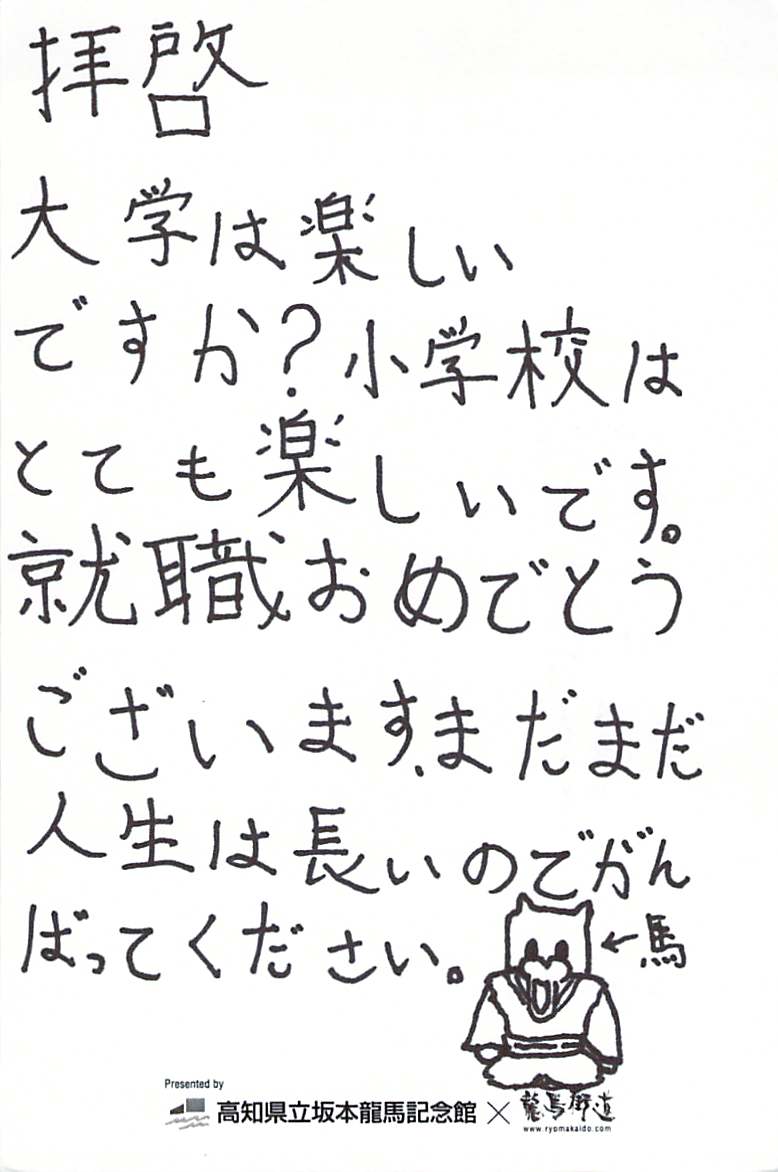 拝啓
大学は楽しい
ですか?小学校は
とても楽しいです。
就職おめでとう
ございます、まだまだ
人生は長いのでがん
ばってください。
←馬
Presented by
高知県立坂本龍馬記念館×龍馬街道
www.ryomakaido.com